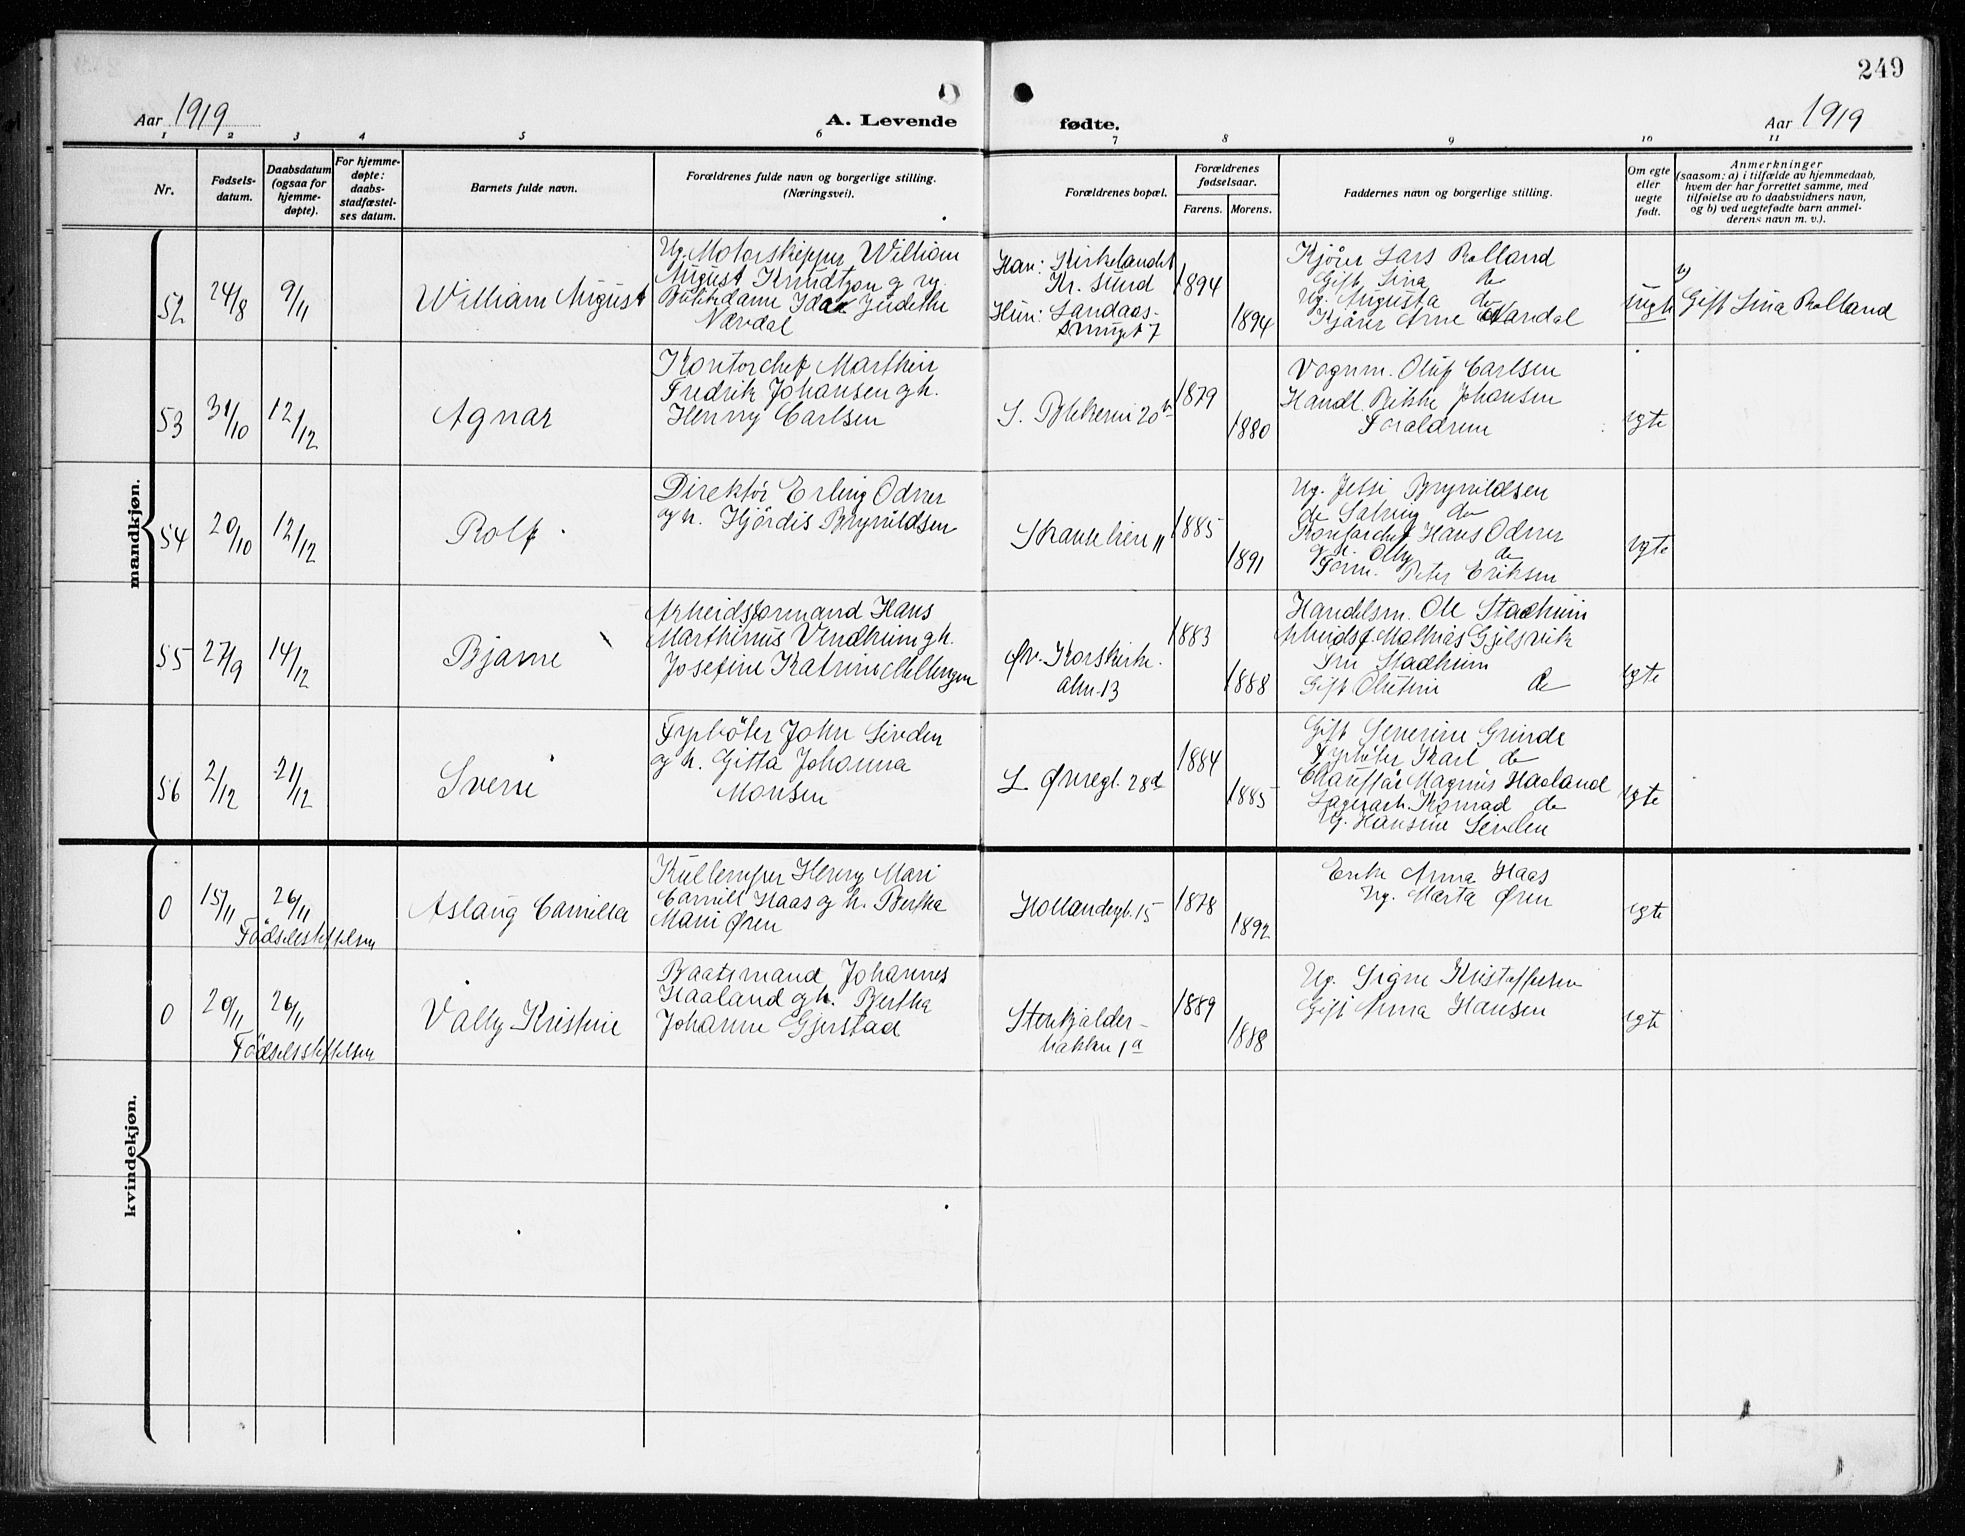 249
Aar 1919
A. Levende
fødte.
Aar 1919
1 2 3 4 5 6 7 8 9 10 11
Nr.
Fødsels-
datum.
Daabsdatum
(ogsaa for
hjemme-
døpte).
For hjemme-
døpte:
daabs-
stadfæstel-
ses datum.
Barnets fulde navn.
Forældrenes fulde navn og borgerlige stilling.
(Næringsvei).
Forældrenes bopæl.
Forældrenes
fødselsaar.
Farens. Morens.
Faddernes navn og borgerlige stilling.
Om egte
eller
uegte
født.
Anmerkninger
(saasom: a) i tilfælde av hjemmedaab,
hvem der har forrettet samme, med
tilføielse av to daabsvidners navn,
og b) ved uegtefødte barn anmel-
derens navn m. v.).
mandkjøn.
52 24/8 9/11 William August
Ug. Motorskipper William
August Knudtzon og ug.
Butikdame Ida Judethe
Nævdal
Han: Kirkelandet
Kr. sund
Hun: Sandaas-
smuget 7
1894
1894
Kjører Lars Rolland
Gift Lina do
Ug. Augusta do
Kjører Arne Nævdal
uegte
b)
Gift Lina Rolland
53 31/10 12/12 Agnar
Kontorchef Marthin
Fredrik Johansen og h.
Henny Carlsen
S. Blekevei 20b
1879
1880
Vognm. Oluf Carlsen
Handl. Rikke Johansen
Forældrene
egte
54 20/10 12/12 Rolf
Direktör Erling Odner
og h. Hjördis Brynildsen
Skanselien 11
1885
1891
Ug. Jessi Brynildsen
do Solveig do
Kontorchef Hans Odner
og h. Olby do
Form. Peter Eriksen
egte
55 27/9 14/12 Bjarne
Arbeidsformand Hans
Marthinus Vindheim og h.
Josefine Katrine Mellingen
Øv. Korskirke-
alm. 13
1883
1888
Handelsm. Ole Stadheim
Arbeidsf. Mathias Gjelsvik
Fru Stadheim
Gift Olufine do
egte
56 2/12 21/12 Sverre
Fyrbøter John Sevden
og h. Gitta Johanna
Monsen
L. Øvregt. 28d
1884
1885
Gift Severine Grinde
Fyrbøter Karl do
Chauffør Magnus Haaland
Lagerarb. Konrad do
Ug. Hansine Sevden
egte
kvindekjøn.
0 15/11 26/11 Aslaug Camilla
Födselsstiftelsen
Kullemper Henry Mari
Camill Haas og h. Bertha
Marie Øren
Hollendergt. 15
1878
1892
Enke Anna Haas
Ug. Marta Øren
egte
0 20/11 26/11 Valby Kristine
Födselsstiftelsen
Baatsmand Johannes
Haaland og h. Bertha
Johanne Gjerstad
Stenkjelder-
bakken 1a
1889
1888
Ug. Signe Kristoffersen
Gift Anna Hansen
egte